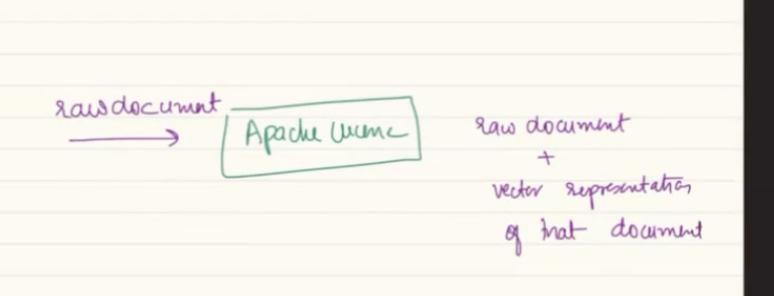 raw document
Apache Lucene
raw document
+
vector representation
of that document